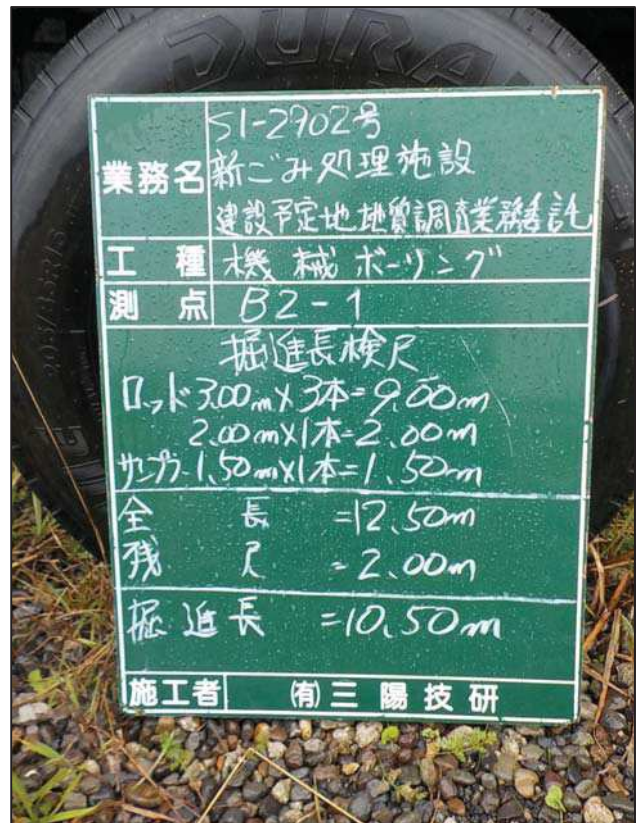 DURA
S1-2902号
業務名 新ごみ処理施設
建設予定地地質調査業務委託
工種 機械ボーリング
測点 B2-1
掘進長検尺
ロッド3.00m×3本=9.00m
2.00m×1本=2.00m
サンプラー1.50m×1本=1.50m
全長=12.50m
残尺=2.00m
掘進長=10.50m
施工者 (有)三陽技研